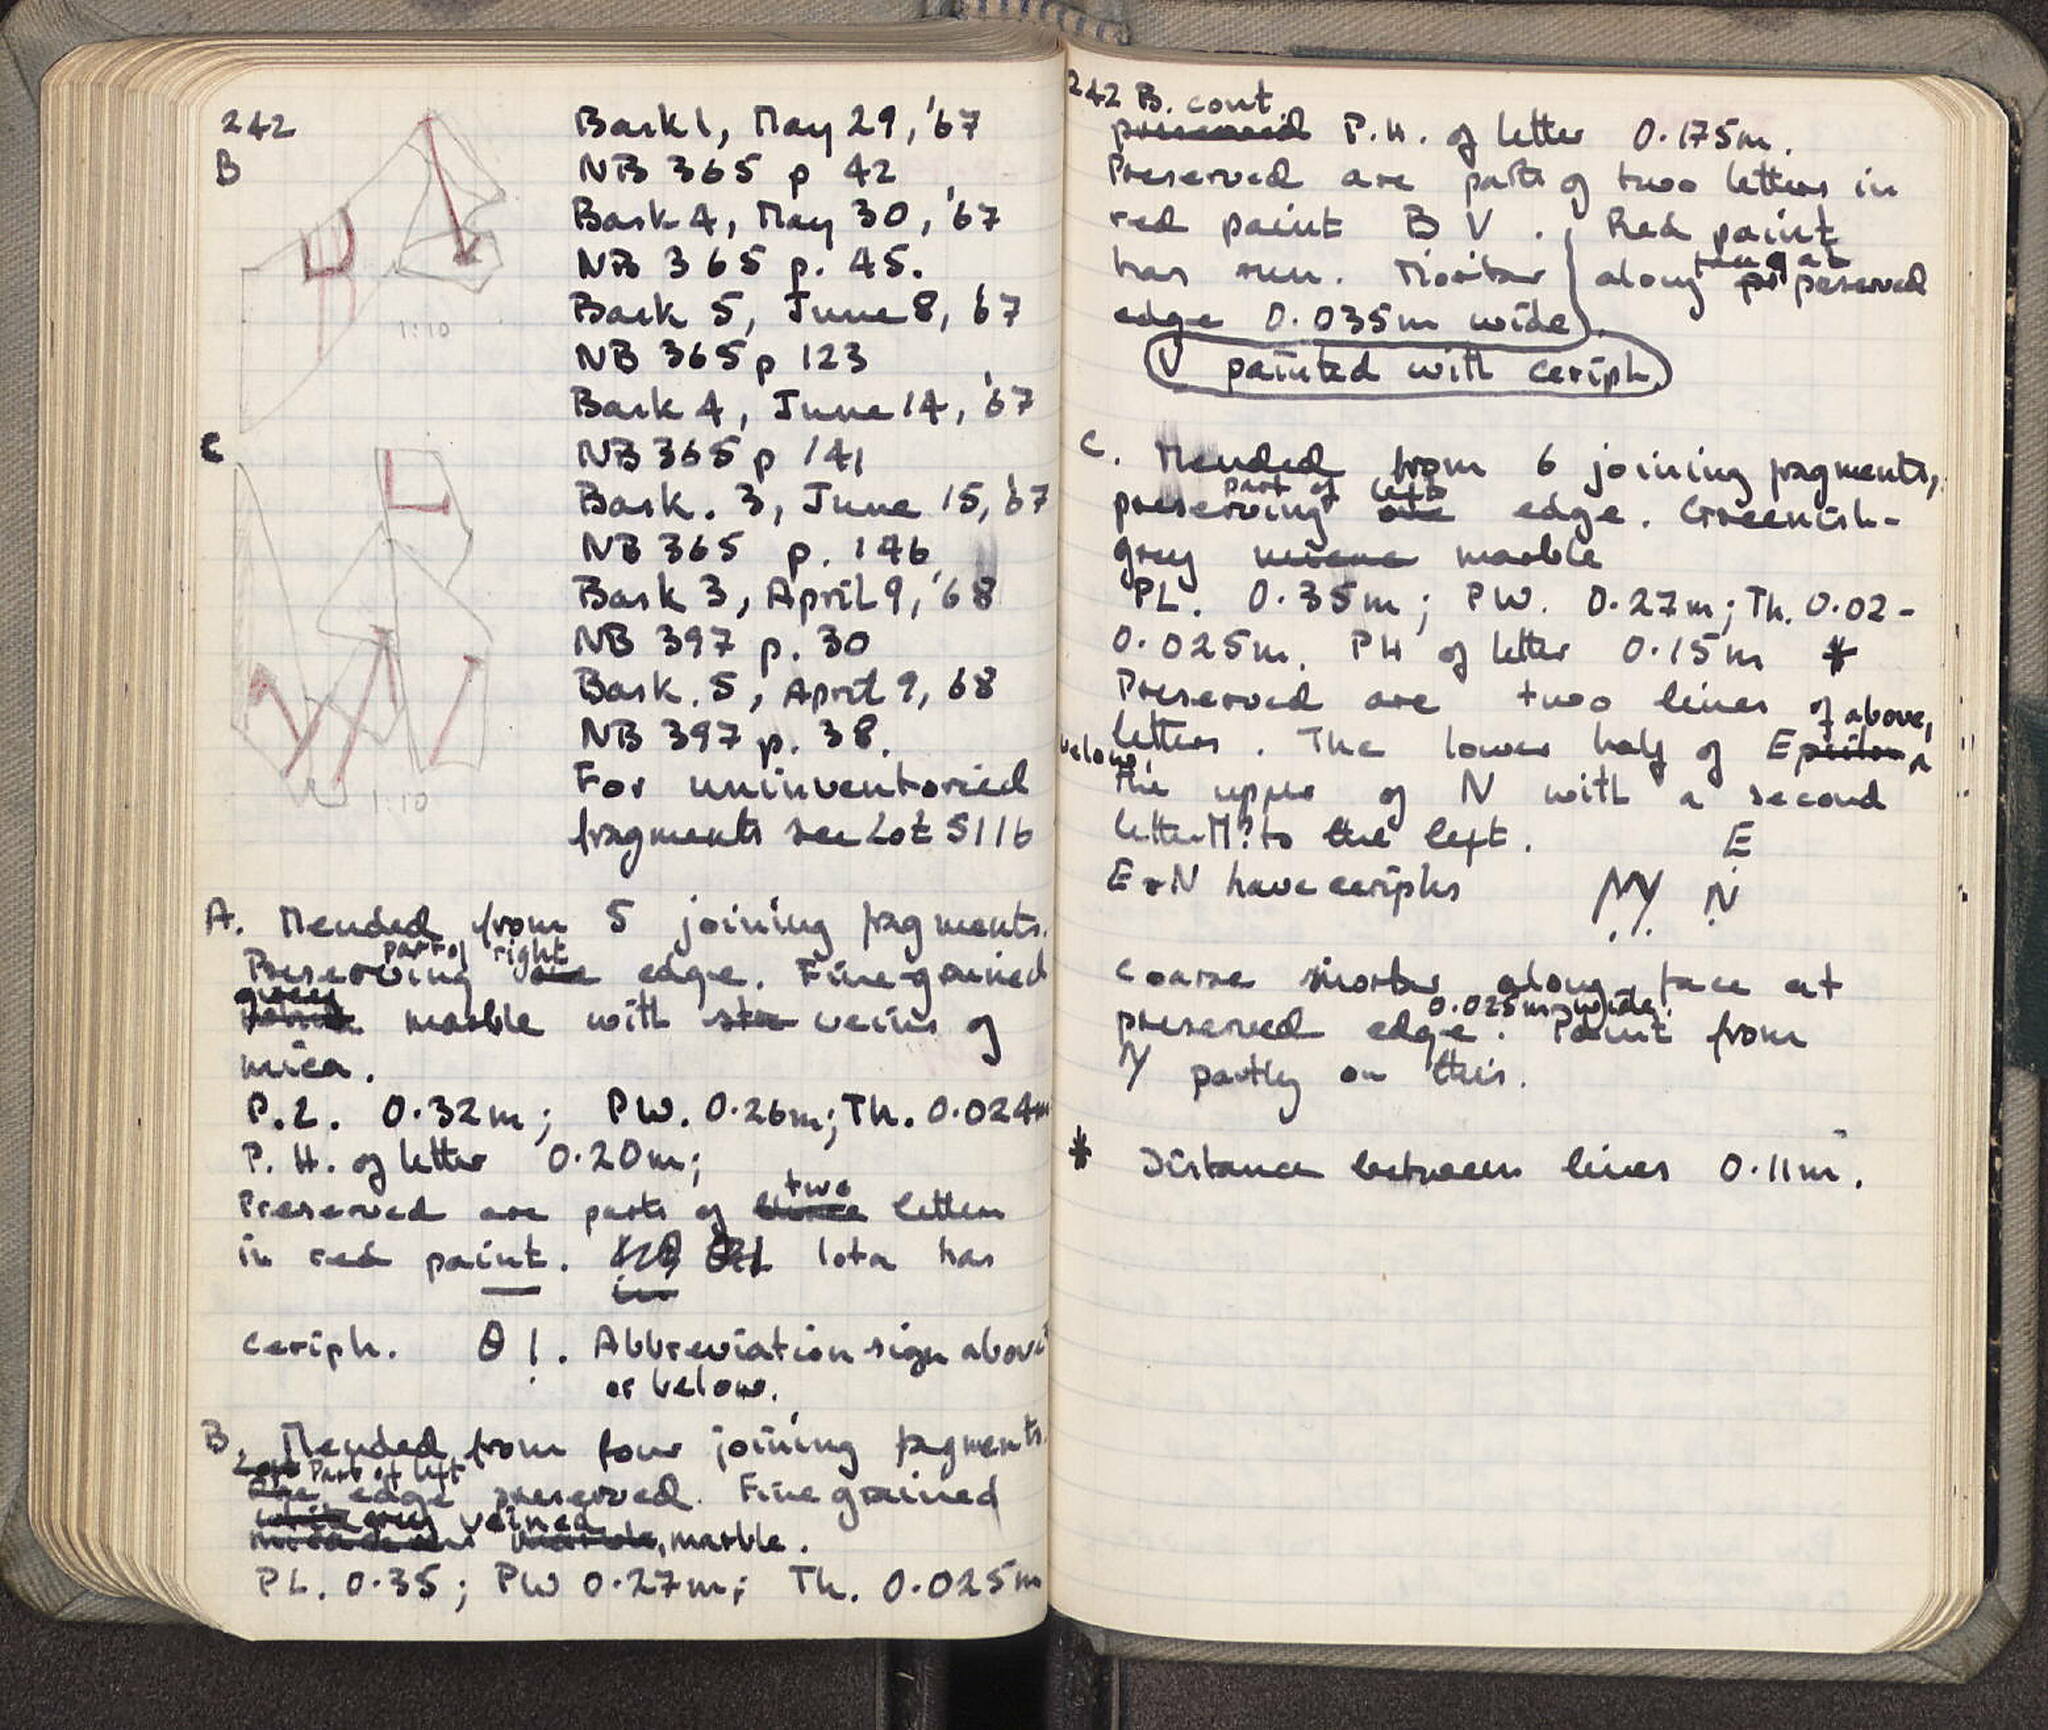 242
B
Bask 1, May 29, '67
NB 365 p 42
Bask 4, May 30, '67
NB 365 p. 45.
Bask 5, June 8, '67
NB 365 p 123
Bask 4, June 14, '67
NB 365 p 141
Bask. 3, June 15, '67
NB 365 p. 146
Bask 3, April 9, '68
NB 397 p. 30
Bask. 5, April 9, 68
NB 397 p. 38.
For uninventoried
fragments see Lot 5116
1:10
C
1:10
A. Mended from 5 joining fragments.
part of right
Preserving one edge. Fine-grained
marble with veins of
mica.
P.L. 0.32m; PW. 0.26m; Th. 0.024m
P. H. of letter 0.20m;
two
Preserved are parts of three letters
in red paint. Iota has
ceriph. θ Ị. Abbreviation sign above
or below.
B. Mended from four joining fragments.
Part of left
One edge preserved. Fine grained
veined
marble.
PL. 0.35; PW 0.27m; Th. 0.025m
242 B. cont
preserved P.H. of letter 0.175m.
Preserved are parts of two letters in
red paint B V. Red paint
has run. Mortar along preserved
edge 0.035m wide.
V painted with ceriph.
C. Mended from 6 joining fragments,
part of left
preserving one edge. Greenish-
grey marble
PL. 0.35m; PW. 0.27m; Th. 0.02-
0.025m. PH of letter 0.15m *
Preserved are two lines of
letters. above, The lower half of Epsilon
below,
the upper of N with a second
letter M? to the left.
E
E + N have ceriphs
N
Coarse mortar along face at
0.025m wide.
preserved edge. Paint from
partly on this.
* Distance between lines 0.11m.